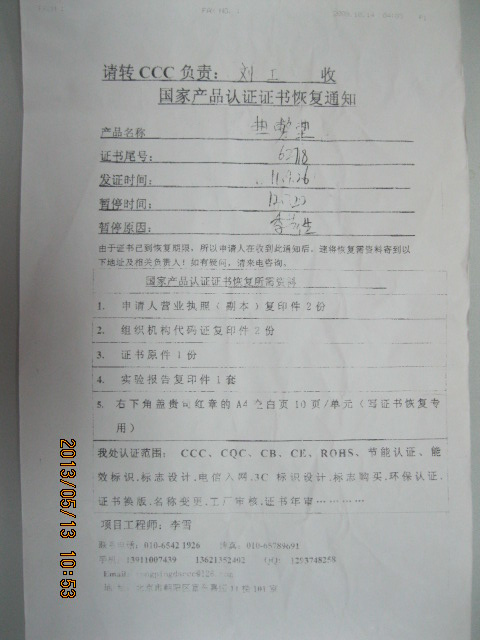 请转 CCC 负责： 刘工 收
国家产品认证证书恢复通知
产品名称
证书尾号：
发证时间：
暂停时间：
暂停原因：
由于证书已到恢复期限，所以申请人在收到此通知后，速将恢复需资料寄到以
下地址及相关负责人！如有疑问，请来电咨询。
国家产品认证证书恢复所需资料
1. 申请人营业执照（副本）复印件 2 份
2. 组织机构代码证复印件 2 份
3. 证书原件 1 份
4. 实验报告复印件 1 套
5. 右下角盖贵司红章的 A4 空白页 10 页/单元（写证书恢复专
用）
我处认证范围： CCC、CQC、CB、CE、ROHS、节能认证、能
效标识、标志设计、电信入网、3C 标识设计、标志购买、环保认证、
证书换版、名称变更、工厂审核、证书年审…………
项目工程师：李雪
联系电话：010-6542 1926 传真：010-65789691
手机：13911007439 13621352402 QQ: 1293748258
Email:
2013/05/13 10:53